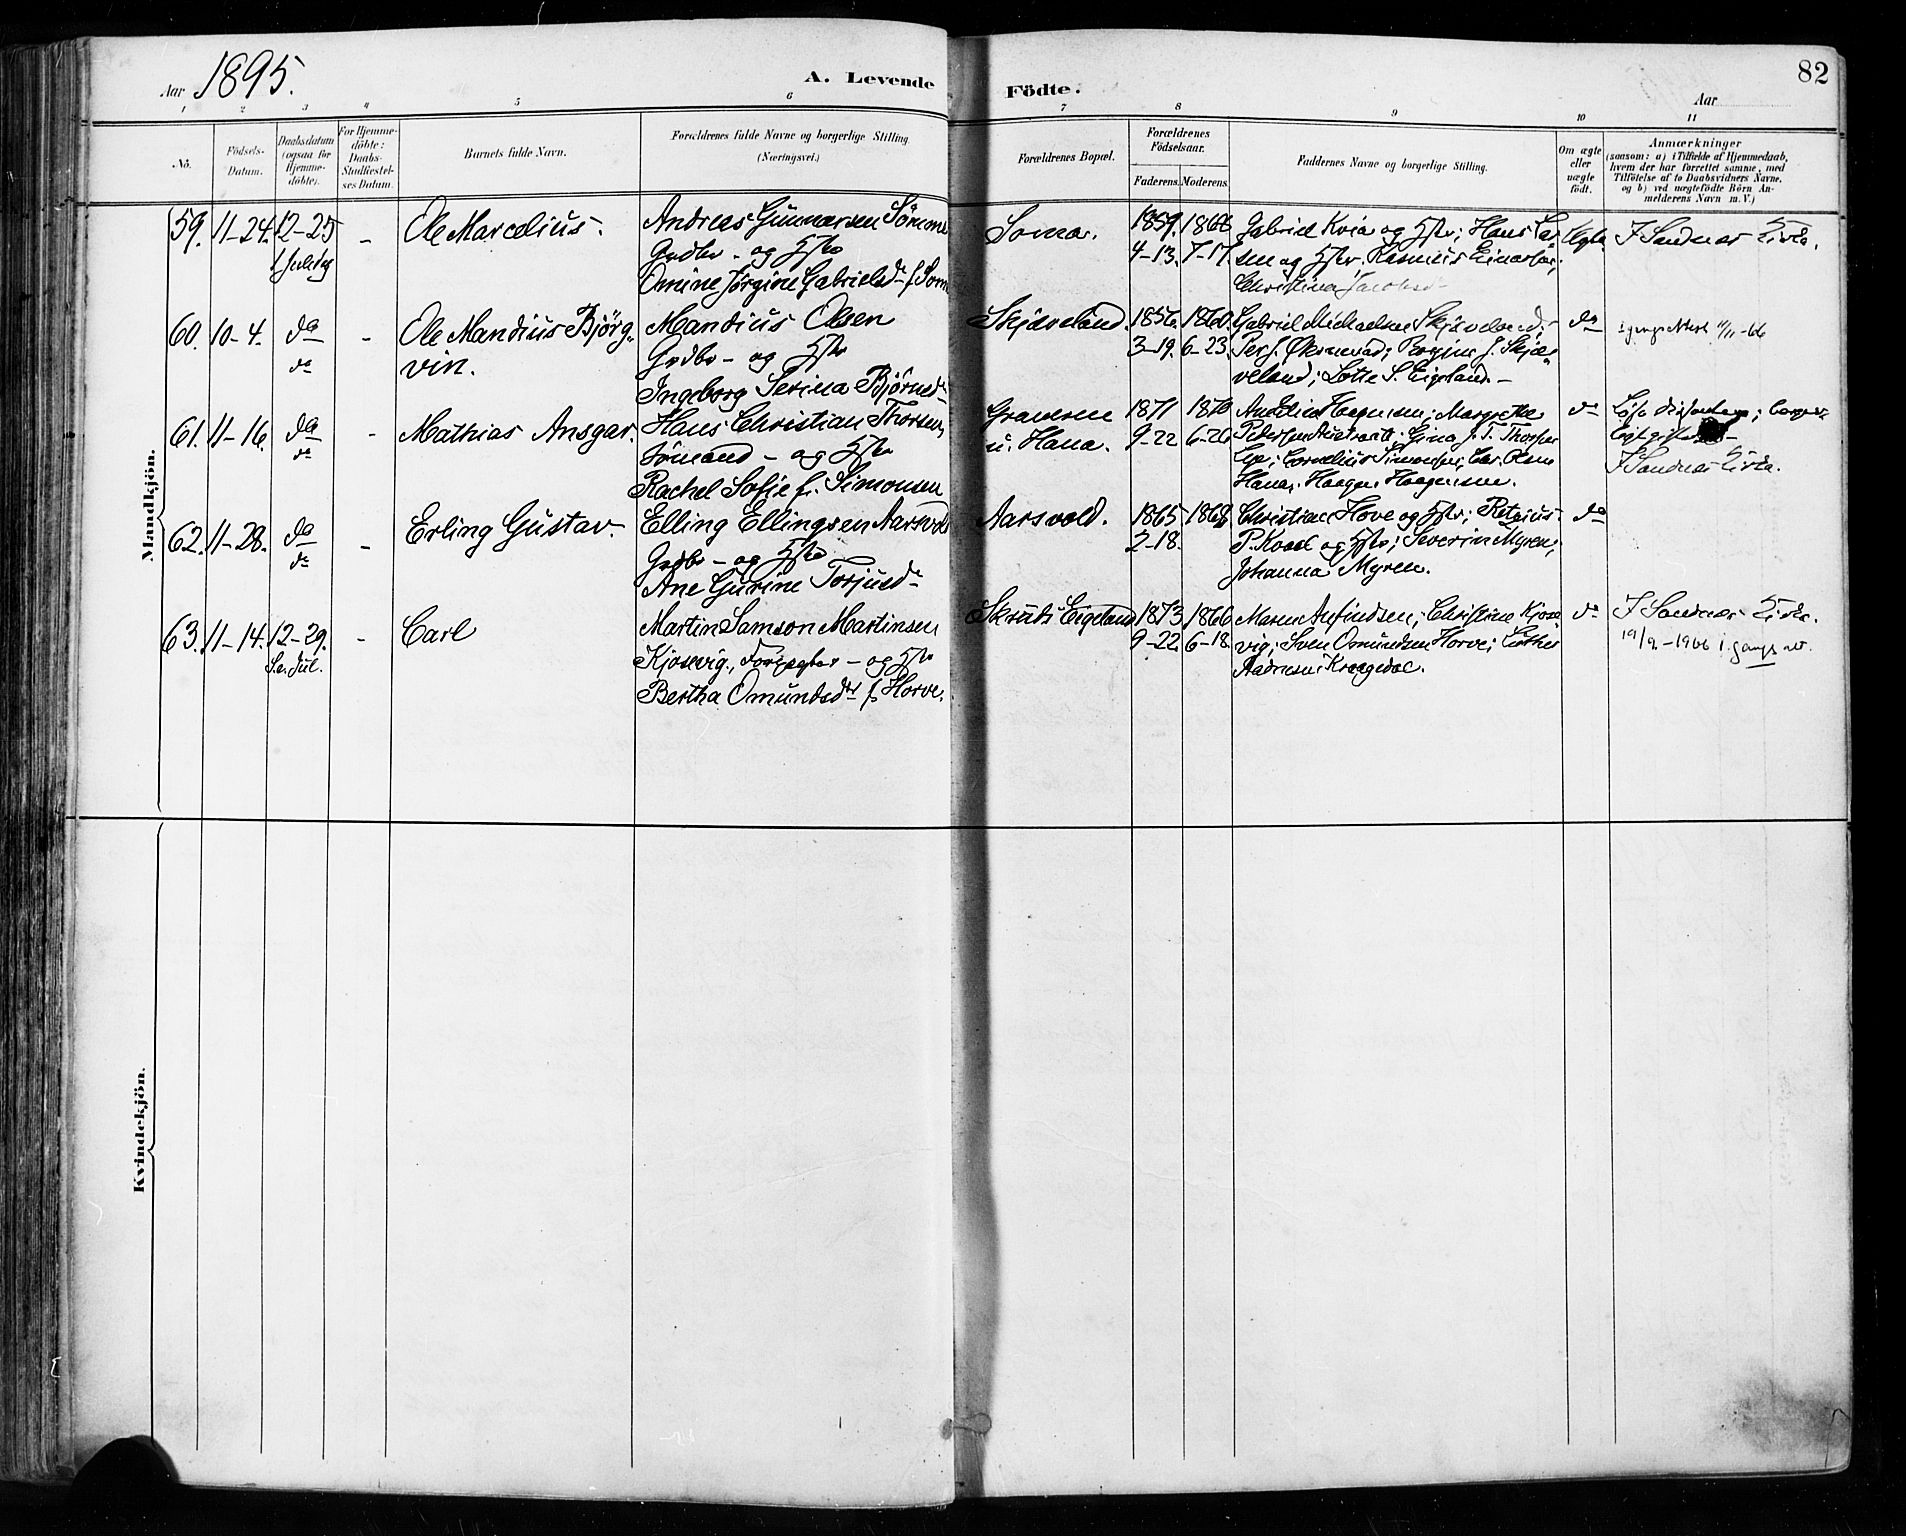 Aar 1895.
A. Levende
Födte.
82
Aar
1 2 3 4 5 6 7 8 9 10 11
No.
Födsels-
Datum.
Daabsdatum
(ogsaa for
Hjemme-
döbte).
For Hjemme-
döbte:
Daabs-
Stadfæstel-
ses Datum.
Barnets fulde Navn.
Forældrenes fulde Navne og borgerlige Stilling
(Næringsvei.)
Forældrenes Bopæl.
Forældrenes
Födselsaar.
Faderens. Moderens.
Faddernes Navne og borgerlige Stilling.
Om ægte
eller
uægte
födt.
Anmærkninger
(saasom: a) i Tilfælde af Hjemmedaab,
hvem der har forrettet samme, med
Tilföielse af to Daabsvidners Navne,
og b) ved uægtefödte Börn An-
melderens Navn m. V.)
Mandkjön.
59. 11-24. 12-25
1 Juledag
-
Ole Marcelius.
Andreas Gunnarsen
Grdbr - og Hstr
Omine Jørgine Gabrielsd. f.
Somar.
1859. 1866
4-13. 7-17.
Gabriel Kvia og Hstr; Hans
og Hstr. Rasmus
Christina Jacobsd
Ægte
I Sandnæs Kirke.
60. 10-4. do
do
-
Ole Mandius Björg-
vin.
Mandius Olsen
Grdbr - og Hstr
Ingeborg Serina Bjørnsd.
Skjæveland.
1856. 1860.
3-19. 6-23.
Gabriel Michaelsen Skjæveland.
Skjæ-
veland; Lotte S. Eigeland. -
do
11/11-66
61. 11-16. do
do
-
Mathias Ansgar.
Hans Christian Thorsen,
Sømand - og Hstr
Rachel Sofie f. Simonsen
Graveren
u. Hana.
1871 1870
9-22 6-26
Haagensen; Margrethe
Pedersen Gina J. T.
Cornelius Simonsen; Olsen
Hana; Haagen Haagensen.
do
I Sandnæs Kirke.
62. 11-28. do
do
-
Erling Gustav.
Elling Ellingsen Aarsvold
Grdbr - og Hstr
Ane Gurine Torjusd.
Aarsvold.
1865 1868
2-18.
Christian Hove og Hstr;
P. og Hstr; Severin Myren;
Johanna Myren.
do
63. 11-14. 12-29.
S. e. Jul.
-
Carl
Martin Samson Martinsen
Kjosevig, Forpagter - og Hstr
Bertha Omundsdtr f. Horve.
Skruds Eigeland
1873 1866
9-22. 6-18
Maren Anfindsen; Christine Kjose
vig; Sven Omundsen Horve;
Kragedal.
do
I Sandnæs Kirke.
19/9.-1966 1. gangs att.
Kvindekjön.